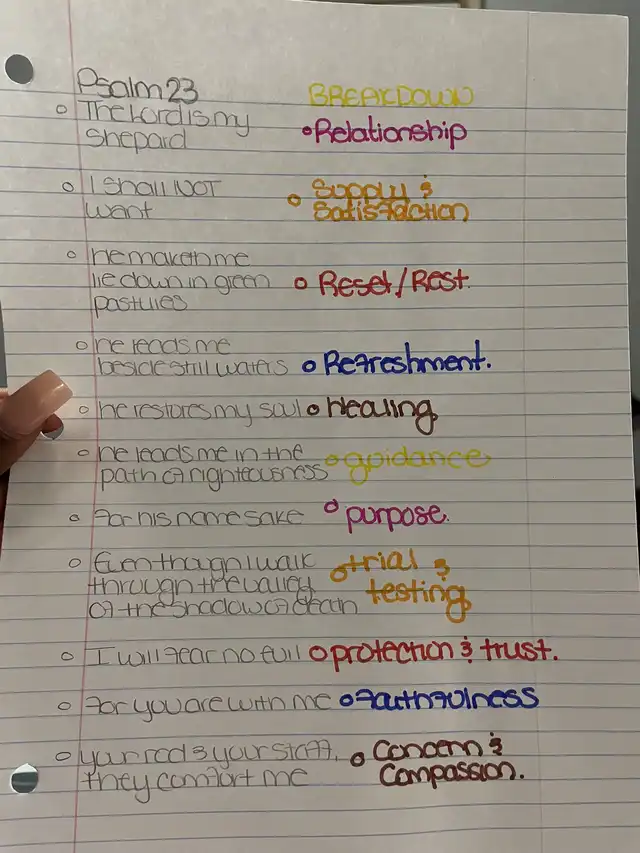 Psalm 23
BREAKDOWN
The Lord is my
Shepard
Relationship
I shall NOT
want
Supply &
Satisfaction
he maketh me
lie down in green
pastures
Reset/Rest.
he leads me
beside still waters
Refreshment.
he restores my soul
Healing
he leads me in the
path of righteousness
guidance
for his name sake
purpose.
Even though I walk
through the valley
of the shadow of death
trial &
testing
I will fear no evil
protection & trust.
for you are with me
faithfulness
your rod & your staff,
they comfort me
Concern &
Compassion.